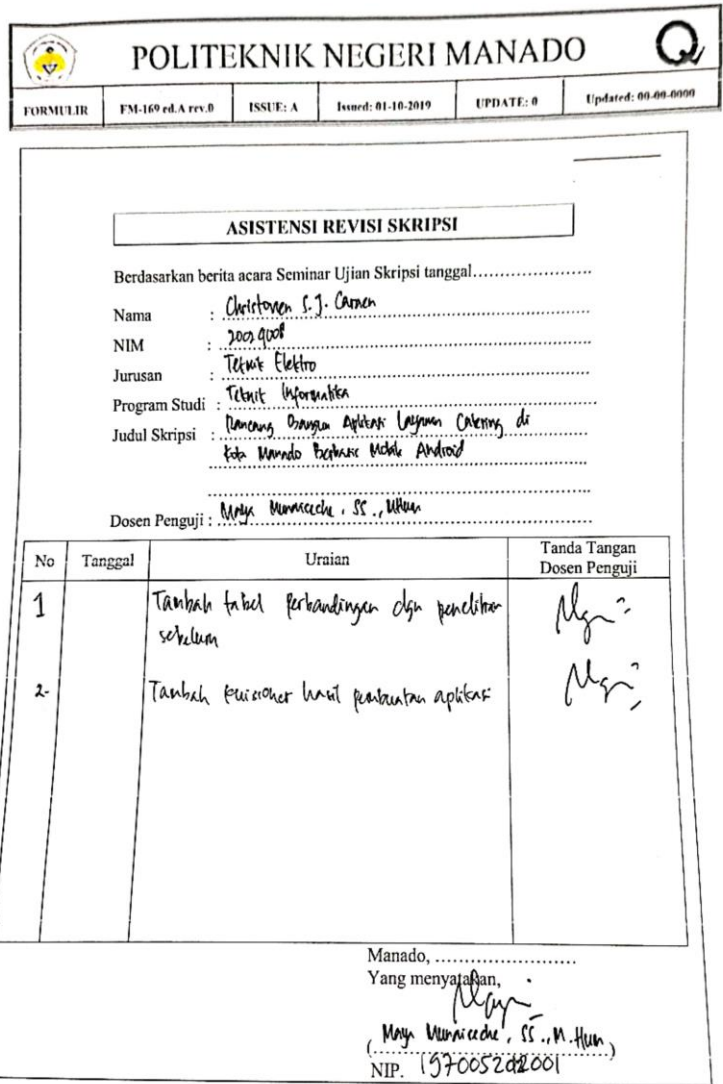 POLITEKNIK NEGERI MANADO
FORMULIR FM-169 ed.A rev.0 ISSUE: A Issued: 01-10-2019 UPDATE: 0 Updated: 00-00-0000
ASISTENSI REVISI SKRIPSI
Berdasarkan berita acara Seminar Ujian Skripsi tanggal......................
Nama : Christoven S. J. Carmen
NIM :
Jurusan : Teknik Elektro
Program Studi : Teknik Informatika
Judul Skripsi : Rancang Bangun Aplikasi Layanan Catering di
Kota Manado Berbasis Mobile Android
Dosen Penguji : Maya Munaiseche, SS., MHum
No Tanggal Uraian Tanda Tangan
Dosen Penguji
1 Tambah tabel perbandingan dgn penelitian
sebelum
2- Tambah kuisioner hasil pembuatan aplikasi
Manado, ........................
Yang menyatakan,
(Maya Munaiseche, SS., M.Hum)
NIP.